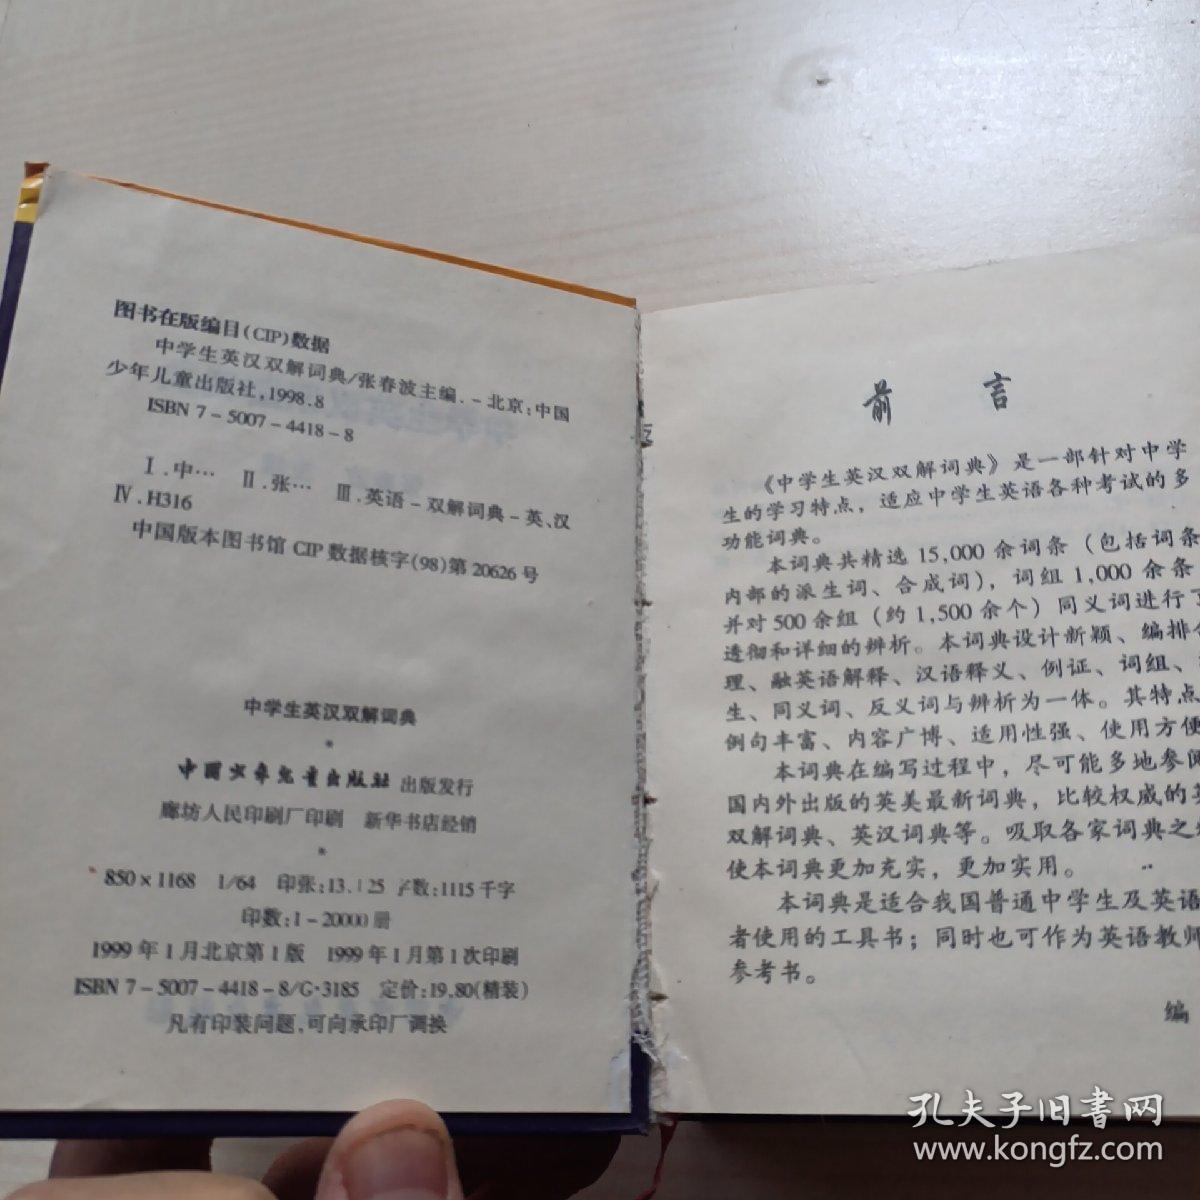 图书在版编目(CIP)数据
中学生英汉双解词典/张春波主编.-北京:中国
少年儿童出版社,1998.8
ISBN 7-5007-4418-8
Ⅰ.中… Ⅱ.张… Ⅲ.英语-双解词典-英、汉
Ⅳ.H316
中国版本图书馆CIP数据核字(98)第20626号
中学生英汉双解词典
*
中国少年儿童出版社 出版发行
廊坊人民印刷厂印刷 新华书店经销
*
850×1168 1/64 印张:13.125 字数:1115千字
印数:1-20000册
1999年1月北京第1版 1999年1月第1次印刷
ISBN 7-5007-4418-8/G·3185 定价:19.80(精装)
凡有印装问题,可向承印厂调换
前言
《中学生英汉双解词典》是一部针对中学
生的学习特点,适应中学生英语各种考试的多
功能词典。
本词典共精选15,000余词条(包括词条
内部的派生词、合成词),词组1,000余条
并对500余组(约1,500余个)同义词进行了
透彻和详细的辨析。本词典设计新颖、编排合
理、融英语解释、汉语释义、例证、词组、
生、同义词、反义词与辨析为一体。其特点
例句丰富、内容广博、适用性强、使用方便
本词典在编写过程中,尽可能多地参阅
国内外出版的英美最新词典,比较权威的英
双解词典、英汉词典等。吸取各家词典之
使本词典更加充实,更加实用。
本词典是适合我国普通中学生及英语
者使用的工具书;同时也可作为英语教师
参考书。
编
孔夫子旧书网
www.kongfz.com